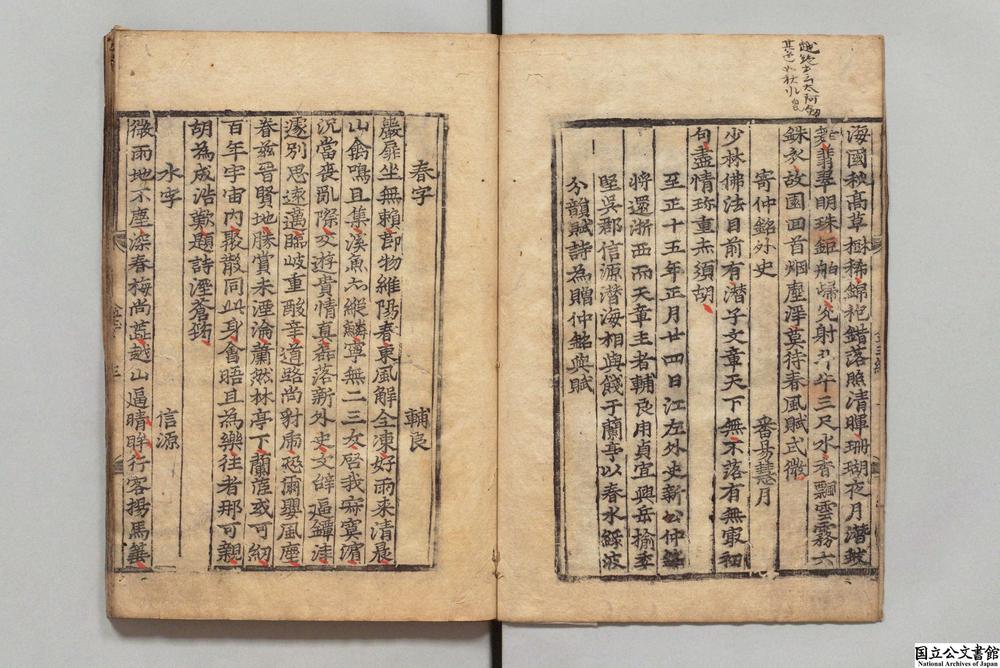 海國秋高草樹稀錦袍錯落照清暉珊瑚夜月潛蛟
舞翡翠明珠鉅舶歸光射斗牛三尺水香飄雲霧六
銖衣故園回首烟塵浮莫待春風賦式微
寄仲銘外史
番昜慧月
少林佛法目前有潛子文章天下無不落有無最初
句盡情珎重赤須胡
至正十五年正月廿四日江左外史新公仲銘
將還浙西而天章主者輔良用貞宜興岳榆季
堅吳郡信源潛海相與餞于蘭亭以春水綠波
分韻賦詩為贈仲銘與賦
春字
輔良
巖扉坐無賴節物維陽春東風解全凍好雨来清晨
山禽鳴且集溪魚亦縱鱗寧無二三友啓我寂寞濵
況當喪亂際交遊貴情真磊落新外史文辭逼鐔津
遽別思逺邁臨岐重酸辛道路尚豺虎恐爾嬰風塵
眷兹晉賢地勝賞未湮淪蕭然林亭下蘭茝或可紉
百年宇宙內聚散同此身會晤且為樂往者那可親
胡為成浩歎題詩溼蒼筠
水字
信源
微雨地不塵深春梅尚蕋越山逼晴眸行客揚馬箠
國立公文書館
National Archives of Japan